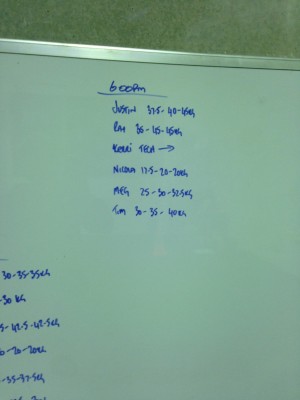 6:00pm
JUSTIN 37.5-40-45KG
35-45-45KG
KERRI →
NICOLA 17.5-20-20KG
MEG 25-30-32.5KG
TIM 30-35-40KG
30-35-35KG
-30 KG
5-42.5-42.5KG
-20-20KG
-35-37.5KG